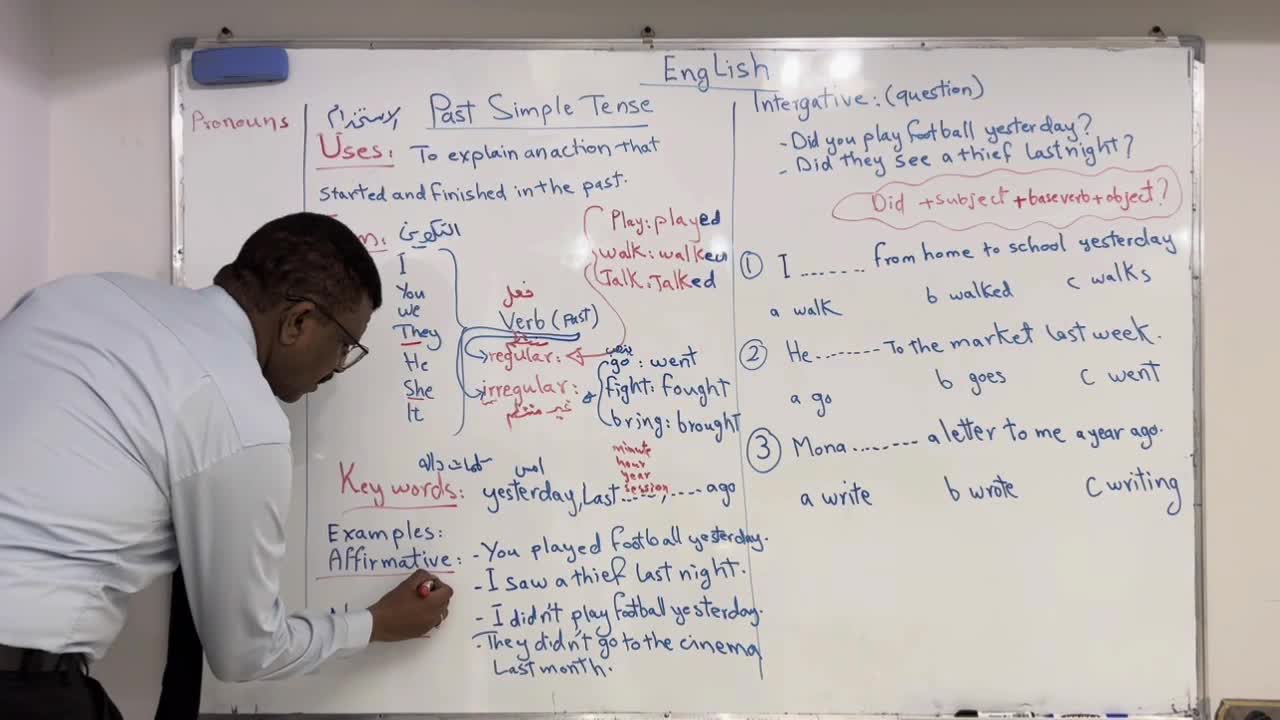 English
Pronouns
الاستخدام Past Simple Tense
Uses: To explain an action that
started and finished in the past.
التكوين
I
You
we
They
He
She
It
فعل
Verb (Past)
regular:
irregular:
غير منتظم
Play: played
walk: walked
Talk: Talked
go: went
fight: fought
bring: brought
كلمات داله
امس
minute
hour
year
session
Key words: yesterday, Last ......, ...... ago
Examples:
Affirmative: - You played football yesterday.
- I saw a thief last night.
- I didn't play football yesterday.
- They didn't go to the cinema
Last month.
Intergative: (question)
- Did you play football yesterday?
- Did they see a thief last night?
Did + subject + base verb + object?
① I ........ from home to school yesterday
a walk b walked c walks
② He ........ To the market last week.
a go b goes c went
③ Mona ........ a letter to me a year ago.
a write b wrote c writing